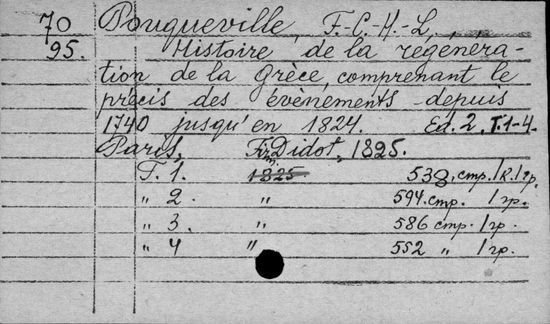 70 Pouqueville, F.-C.-H.-L.,
95. Histoire de la régénéra-
tion de la Grèce, comprenant le
précis des évènements depuis
1740 jusqu'en 1824. Ed. 2. T. 1-4.
Paris, Firm. Didot, 1825.
T. 1. 1825 538 стр. 1 к. 1 гр.
" 2. " 594 стр. 1 гр.
" 3. " 586 стр. 1 гр.
" 4 " 552 " 1 гр.